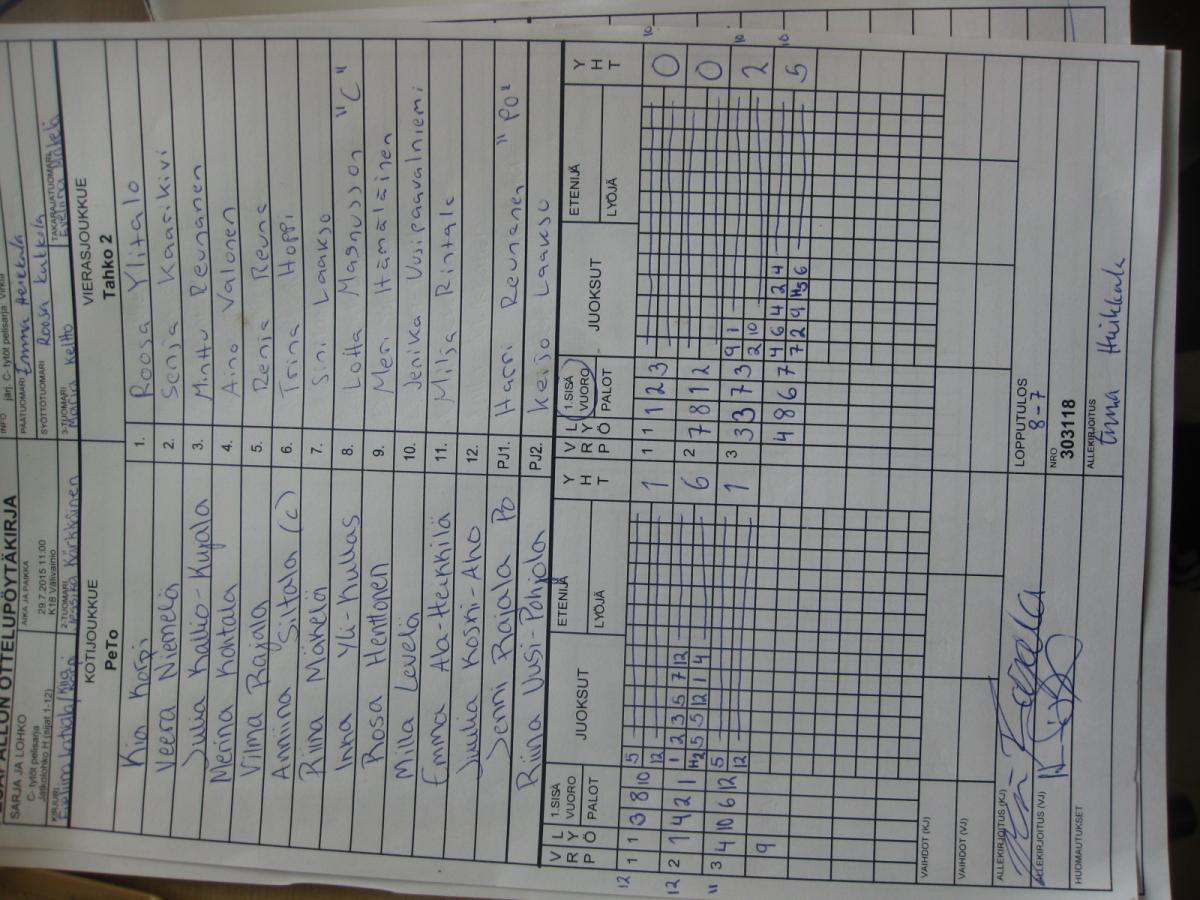 PESÄPALLON OTTELUPÖYTÄKIRJA
SARJA JA LOHKO
C- tytöt pelisarja
Jatkolohko H (sijat 1-12)
AIKA JA PAIKKA
29.7.2015 11:00
K18 Välivainio
INFO järj. C- tytöt pelisarja
PÄÄTUOMARI
SYÖTTÖTUOMARI Roosa
KIRJURI
2-TUOMARI Jessika Kärkkäinen
3-TUOMARI Marja Keltto
TAKARAJATUOMARI Eveliina Mäkelä
KOTIJOUKKUE
PeTo
VIERASJOUKKUE
Tahko 2
Kia Korpi 1. Roosa Ylitalo
Veera Niemelä 2. Senja Kaarikivi
Julia Kallio-Kujala 3. Minttu Reunanen
Merina Kohtala 4. Aino Valonen
Vilma Rajala 5. Renja Reuna
Anniina Siltala (c) 6. Triina Hoppi
Riina Mäkelä 7. Sini Laakso
Inna Yli-Hukas 8. Lotta Magnusson "C"
Rosa Henttonen 9. Meri Hämäläinen
Milla Levelä 10. Jenika Uusipaavalniemi
Emma Ala-Heikkilä 11. Milja Rintala
Juulia Koski-Aho 12.
Jenni Rajala Po PJ1. Harri Reunanen "PO"
Riina Uusi-Pohjola PJ2. Keijo Laakso
V R P L Y Ö 1.SISÄ VUORO PALOT JUOKSUT ETENIJÄ LYÖJÄ Y H T
V R P L Y Ö 1.SISÄ VUORO PALOT JUOKSUT ETENIJÄ LYÖJÄ Y H T
12 1 1 3 8 10 5 12 1
1 1 1 2 3 0 10
12 2 1 4 2 1 1 2 3 5 7 12 H2 5 5 12 1 4 6
2 7 8 1 2 0
11 3 4 10 6 12 5 12 1
3 3 3 7 3 9 1 2 10 2 10
9
4 8 6 7 4 6 4 2 4 7 2 9 H5 6 5 10
VAIHDOT (KJ)
VAIHDOT (VJ)
ALLEKIRJOITUS (KJ)
ALLEKIRJOITUS (VJ)
HUOMAUTUKSET
LOPPUTULOS
8-7
NRO
303118
ALLEKIRJOITUS